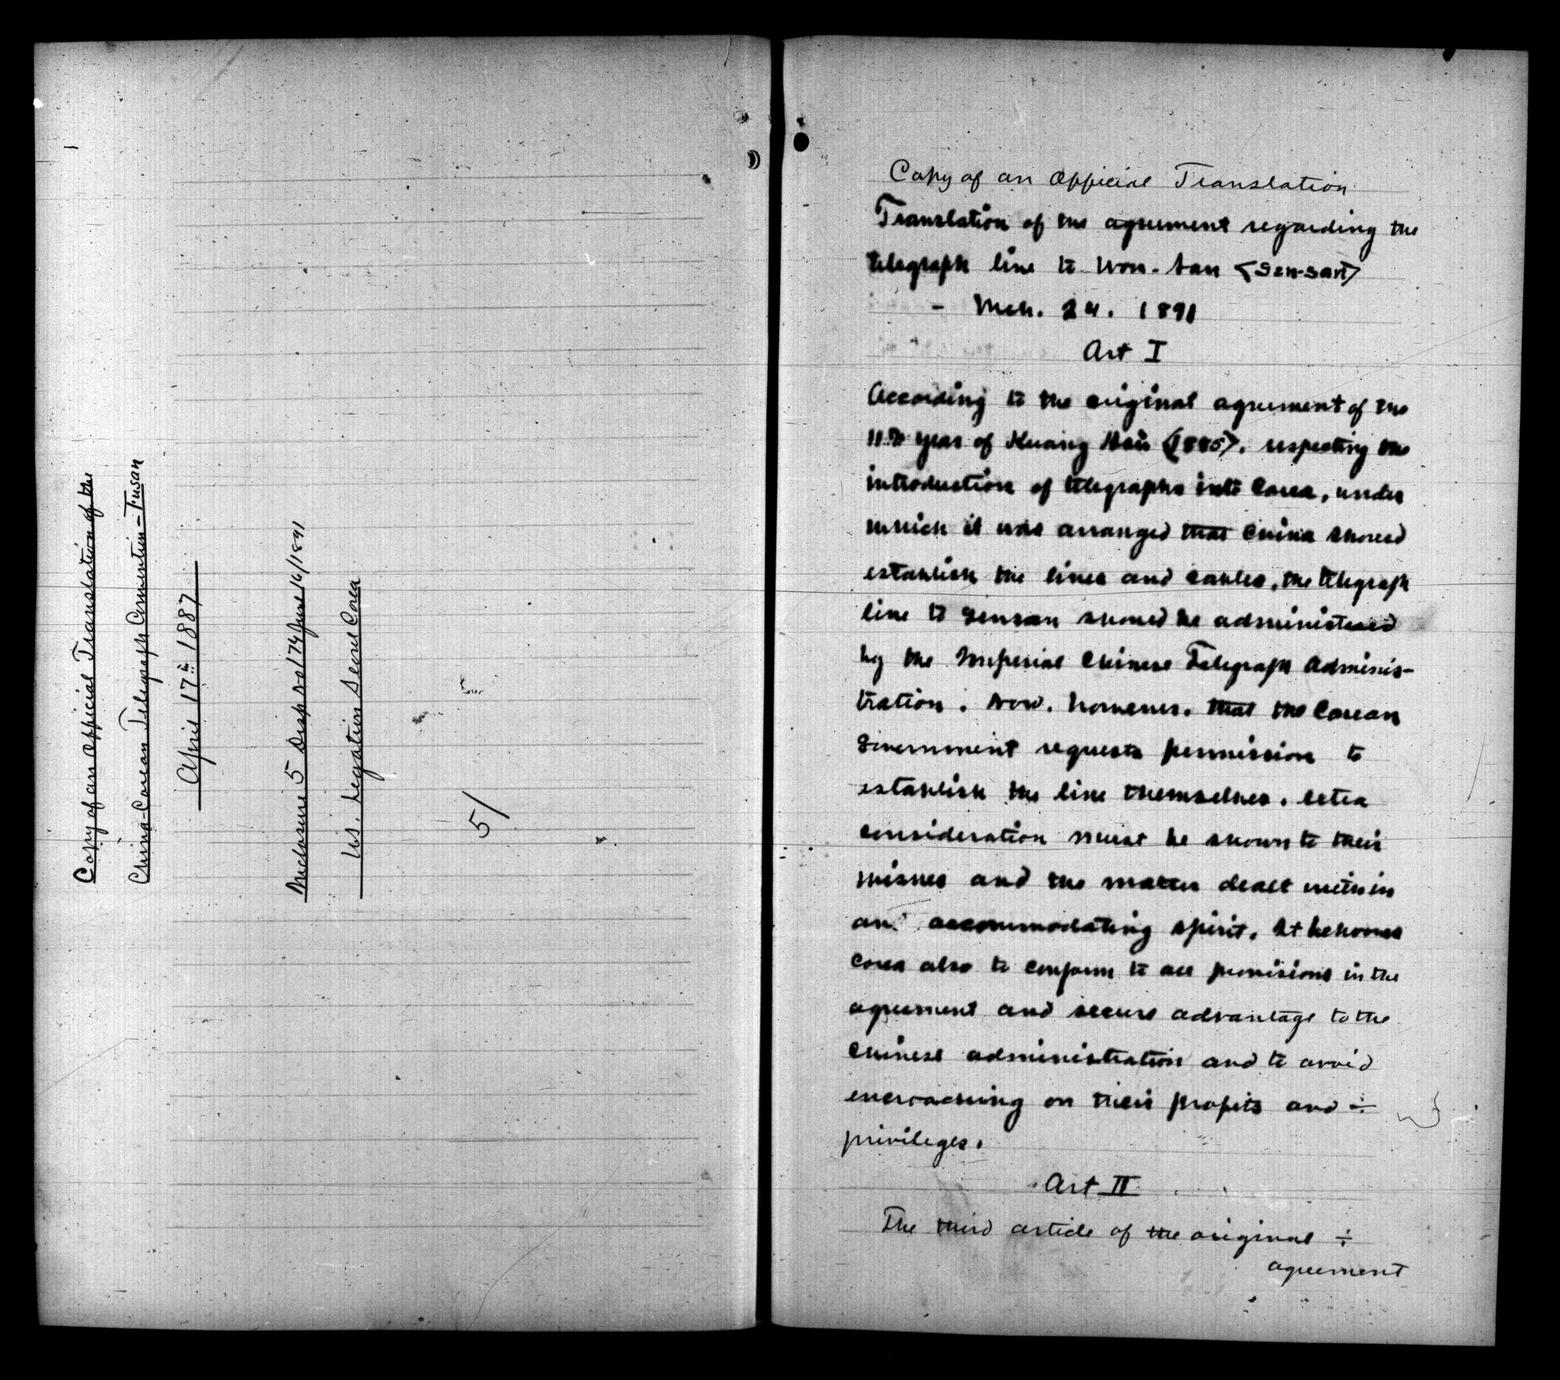 Copy of an Official Translation of the
China-Corean Telegraph Convention - Fusan
April 17th 1887
Inclosure 5 Disp. No 174 June 16/1891
U.S. Legation Seoul Corea
5/
Copy of an Official Translation
Translation of the agreement regarding the
telegraph line to Won-san <Gen-san>
- Mch. 24. 1891
Art I
According to the original agreement of the
11th year of Kuang Hsü (1885), respecting the
introduction of telegraphs into Corea, under
which it was arranged that China should
establish the lines and cables, the telegraph
line to Gensan should be administered
by the Imperial Chinese Telegraph Adminis-
tration. Now, however, that the Corean
Government requests permission to
establish the line themselves, extra
consideration must be shown to their
wishes and the matter dealt with in
an accommodating spirit. It behooves
Corea also to conform to all provisions in the
agreement and secure advantage to the
Chinese administration and to avoid
encroaching on their profits and ÷
privileges.
Art II
The third article of the original ÷
agreement